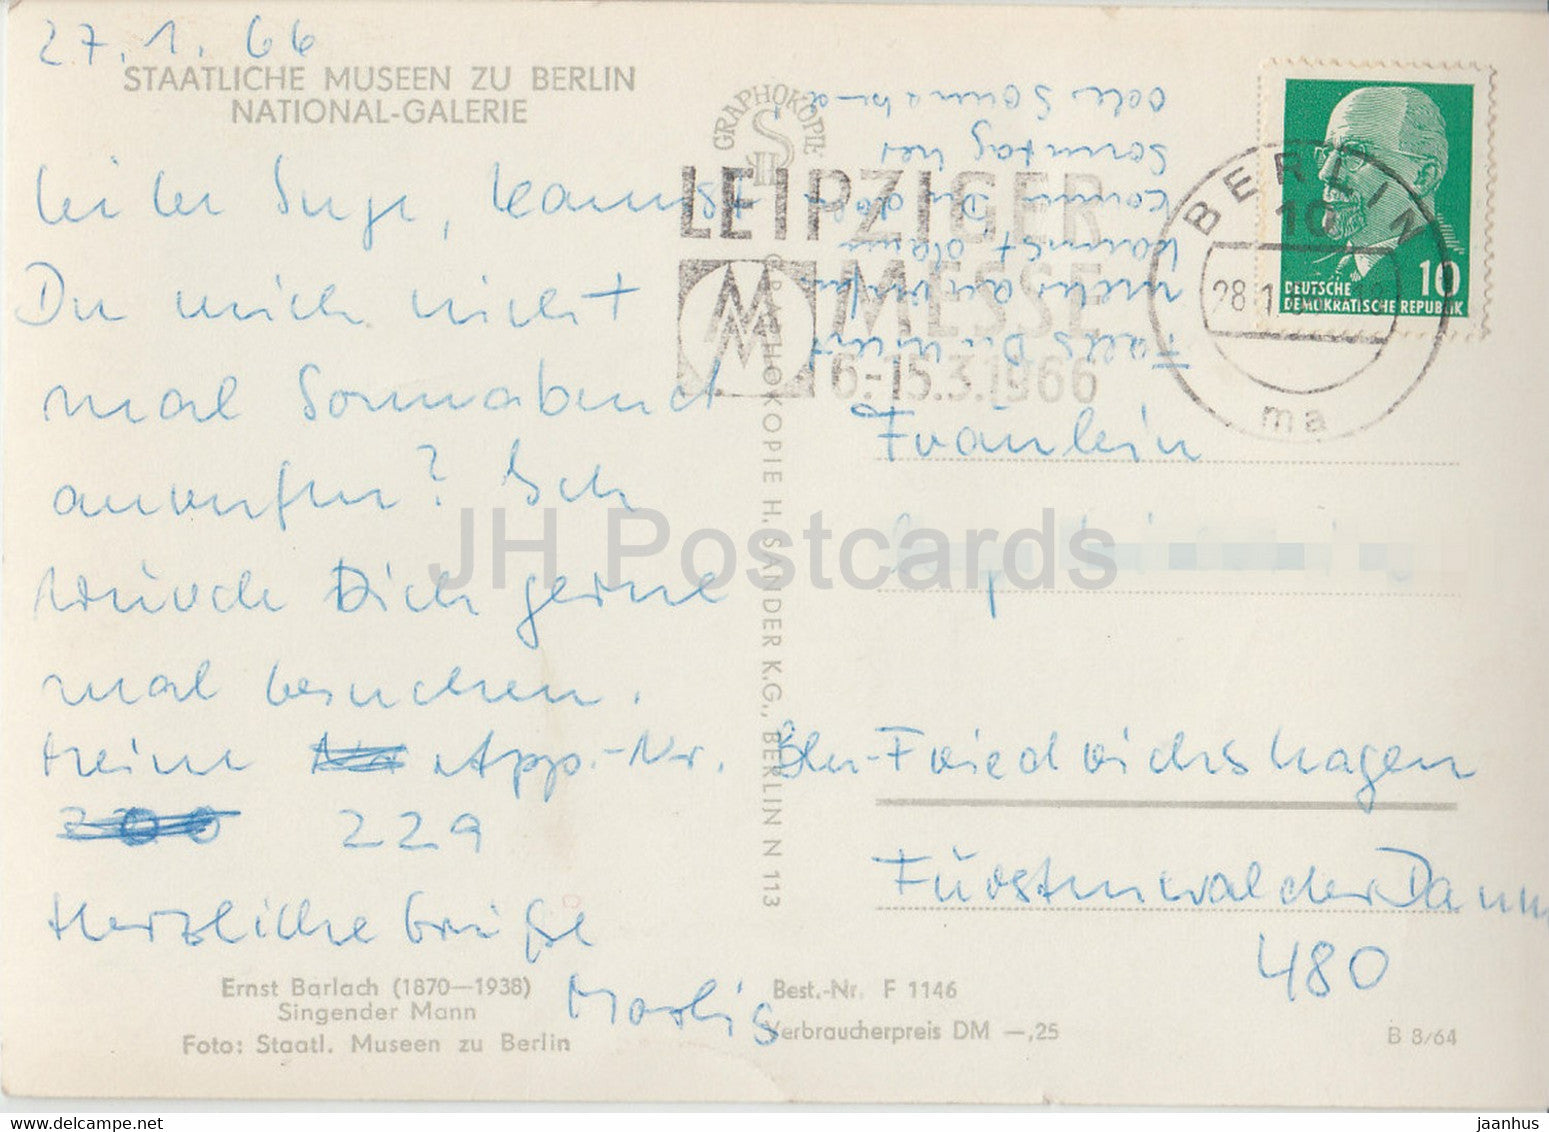 27.1.66
STAATLICHE MUSEEN ZU BERLIN
NATIONAL-GALERIE
Liebe Inge, kannst
Du mich nicht
mal Sonnabend
anrufen? Ich
würde Dich gerne
mal besuchen.
Meine App.-Nr.
229
Herzliche Grüße
Marlis
Ernst Barlach (1870—1938)
Singender Mann
Foto: Staatl. Museen zu Berlin
GRAPHOKOPIE
H S
GRAPHOKOPIE H. SANDER K.G., BERLIN N 113
Falls Du nicht
anrufen
kannst dann
komm Du doch
Sonntag
oder Sonnabend
LEIPZIGER
MESSE
6.-15.3.1966
MM
BERLIN
10
28.1
ma
10
DEUTSCHE
DEMOKRATISCHE REPUBLIK
Fräulein
Bln-Friedrichshagen
Fürstenwalder Damm
480
Best.-Nr. F 1146
Verbraucherpreis DM —,25
B 3/64
JH Postcards
jaanhus